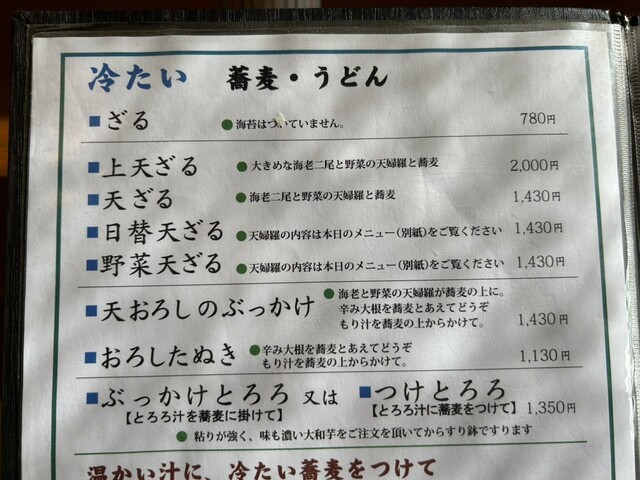 冷たい 蕎麦・うどん
■ざる ●海苔はついていません。 780円
■上天ざる ●大きめな海老二尾と野菜の天婦羅と蕎麦 2,000円
■天ざる ●海老二尾と野菜の天婦羅と蕎麦 1,430円
■日替天ざる ●天婦羅の内容は本日のメニュー（別紙）をご覧ください 1,430円
■野菜天ざる ●天婦羅の内容は本日のメニュー（別紙）をご覧ください 1,430円
■天おろしのぶっかけ ●海老と野菜の天婦羅が蕎麦の上に。
辛み大根を蕎麦とあえてどうぞ
もり汁を蕎麦の上からかけて。 1,430円
■おろしたぬき ●辛み大根を蕎麦とあえてどうぞ
もり汁を蕎麦の上からかけて。 1,130円
■ぶっかけとろろ 又は ■つけとろろ
【とろろ汁を蕎麦に掛けて】 【とろろ汁に蕎麦をつけて】 1,350円
●粘りが強く、味も濃い大和芋をご注文を頂いてからすり鉢ですります
温かい汁に、冷たい蕎麦をつけて